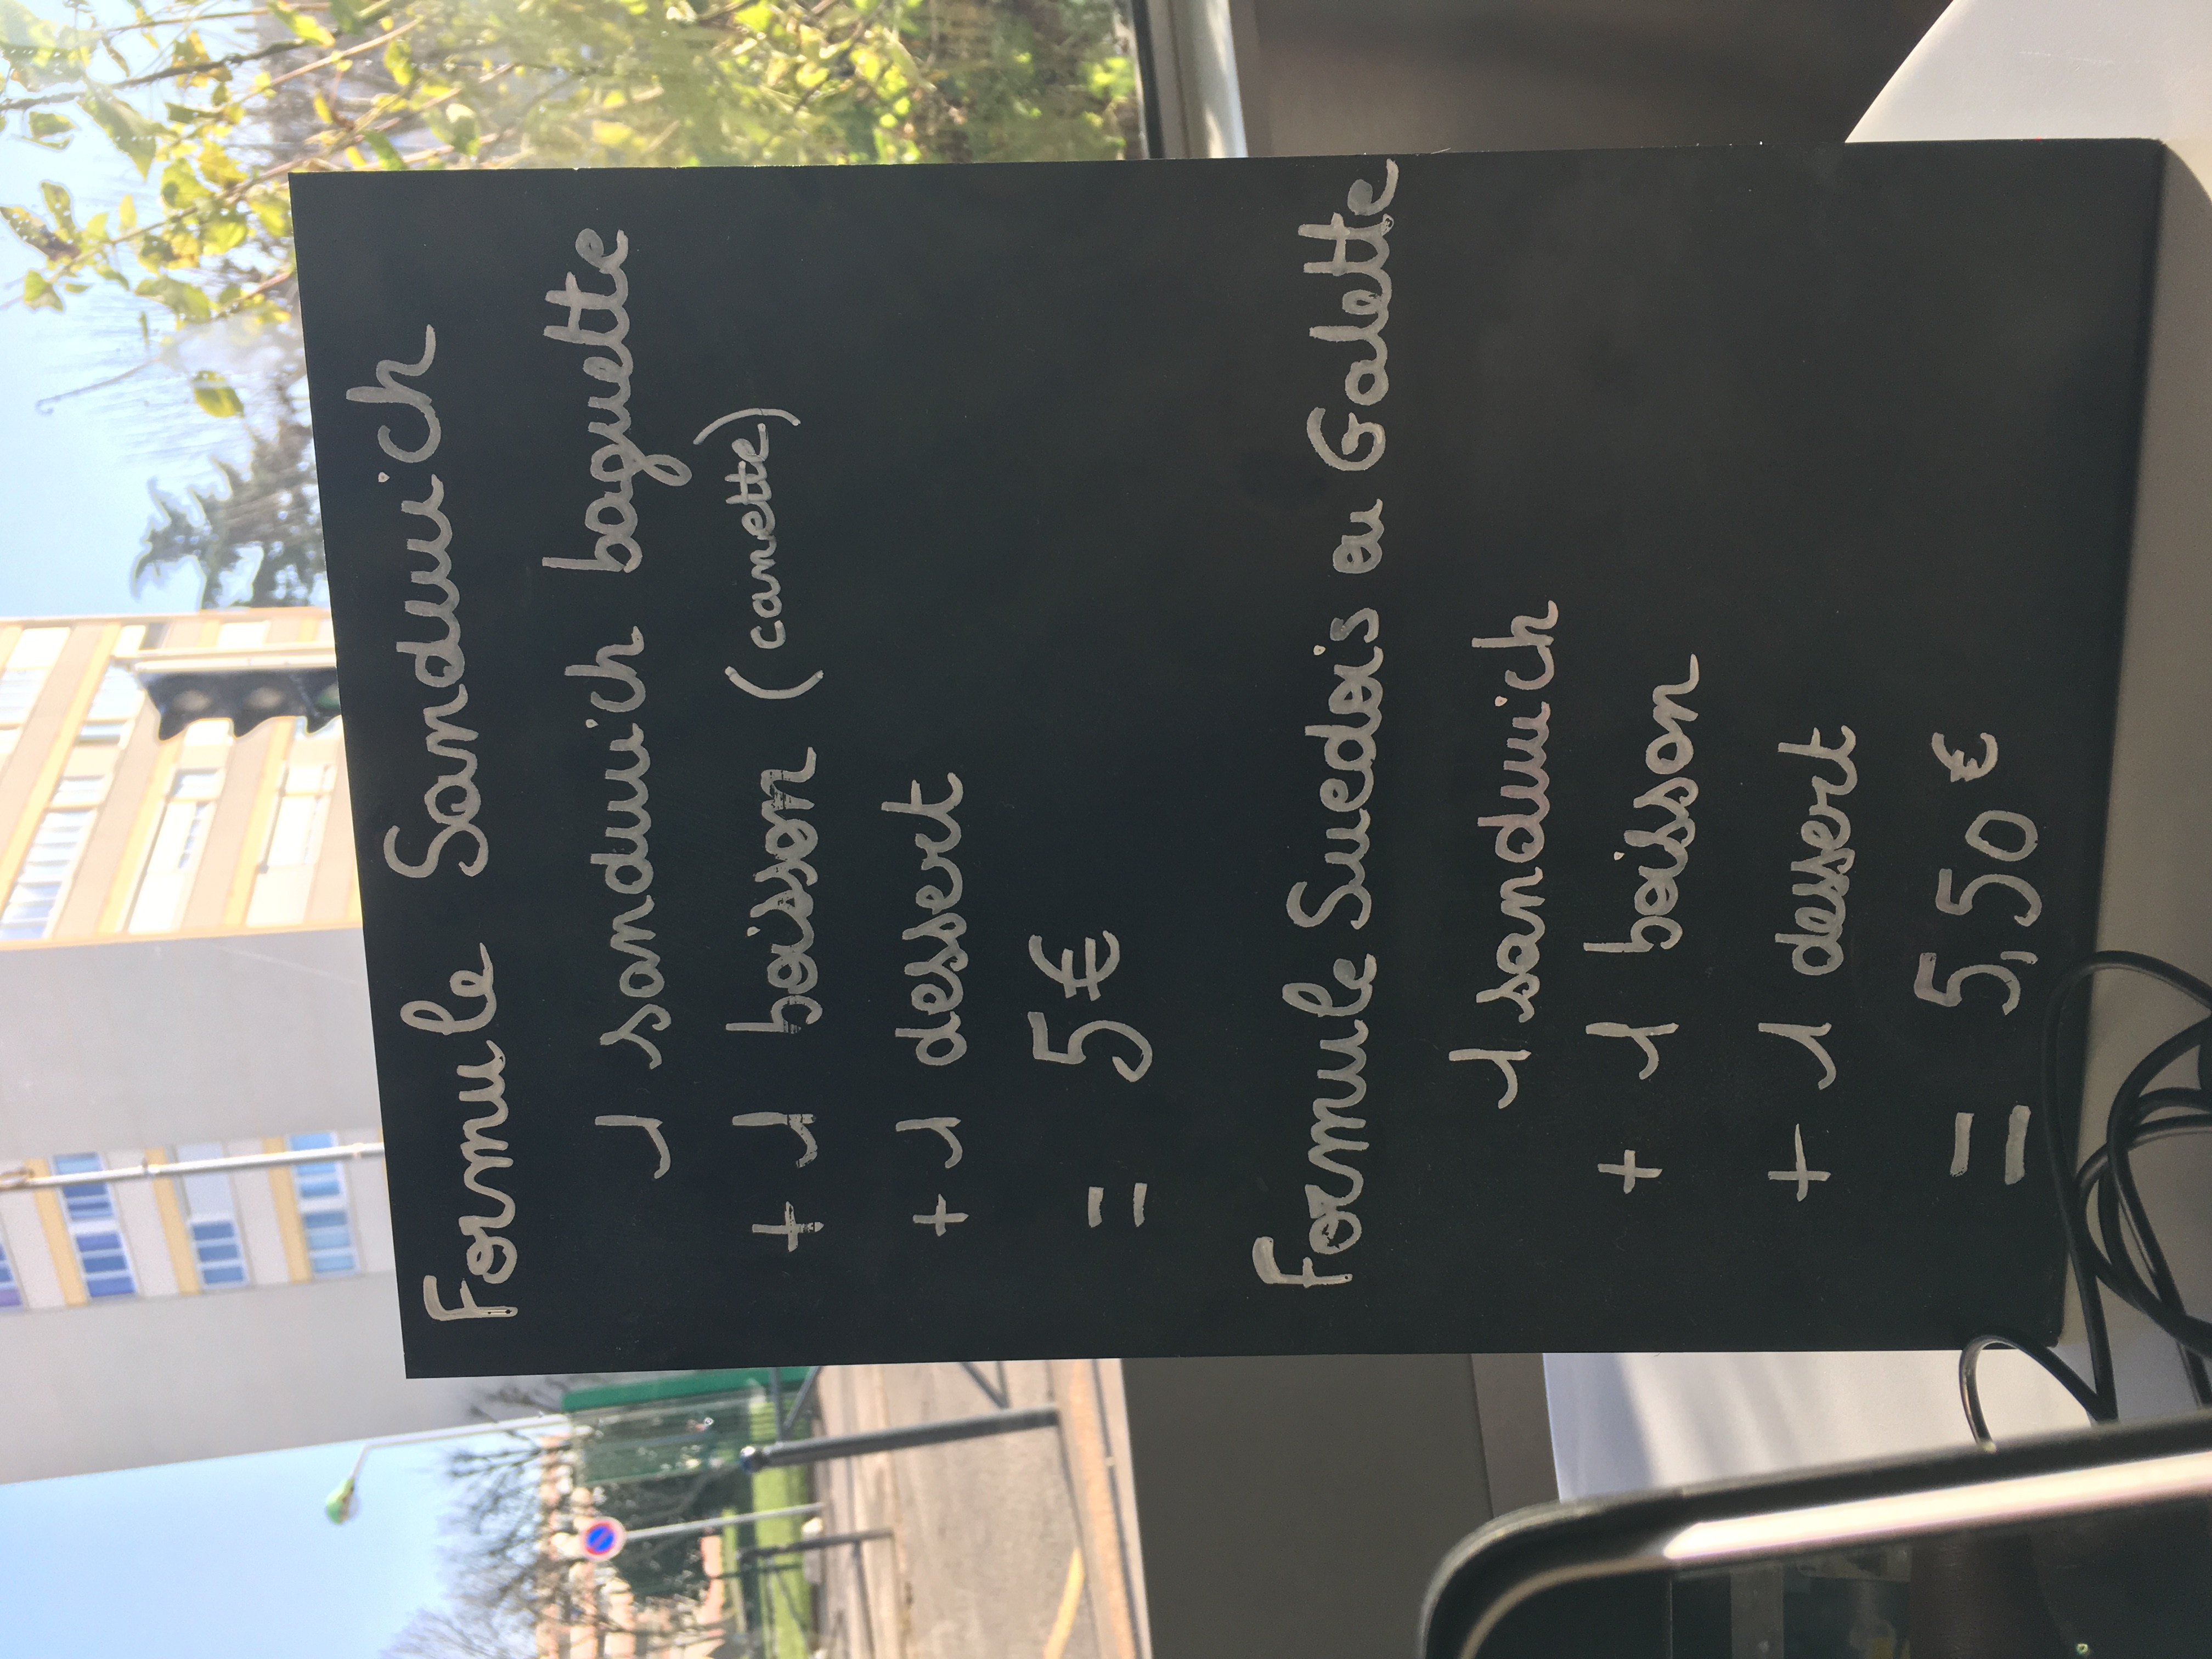 Formule Sandwich
1 sandwich baguette
+ 1 boisson (canette)
+ 1 dessert
= 5€
Formule Suedois ou Galette
1 sandwich
+ 1 boisson
+ 1 dessert
= 5,50 €